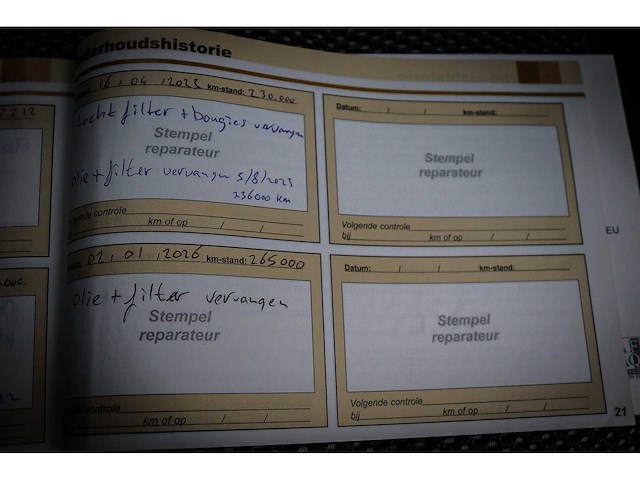 derhoudshistorie
16, 04, 2025 km-stand: 230.000
Lucht filter + bougies vervangen
Stempel
reparateur
olie + filter vervangen 5/8/2025
236000 km
gende controle
km of op / /
02, 01, 2026 km-stand: 265000
olie + filter vervangen
Stempel
reparateur
controle
km of op / /
Datum: / / km-stand:
Stempel
reparateur
Volgende controle
bij km of op / /
Datum: / / km-stand:
Stempel
reparateur
Volgende controle
bij km of op / /
EU
21